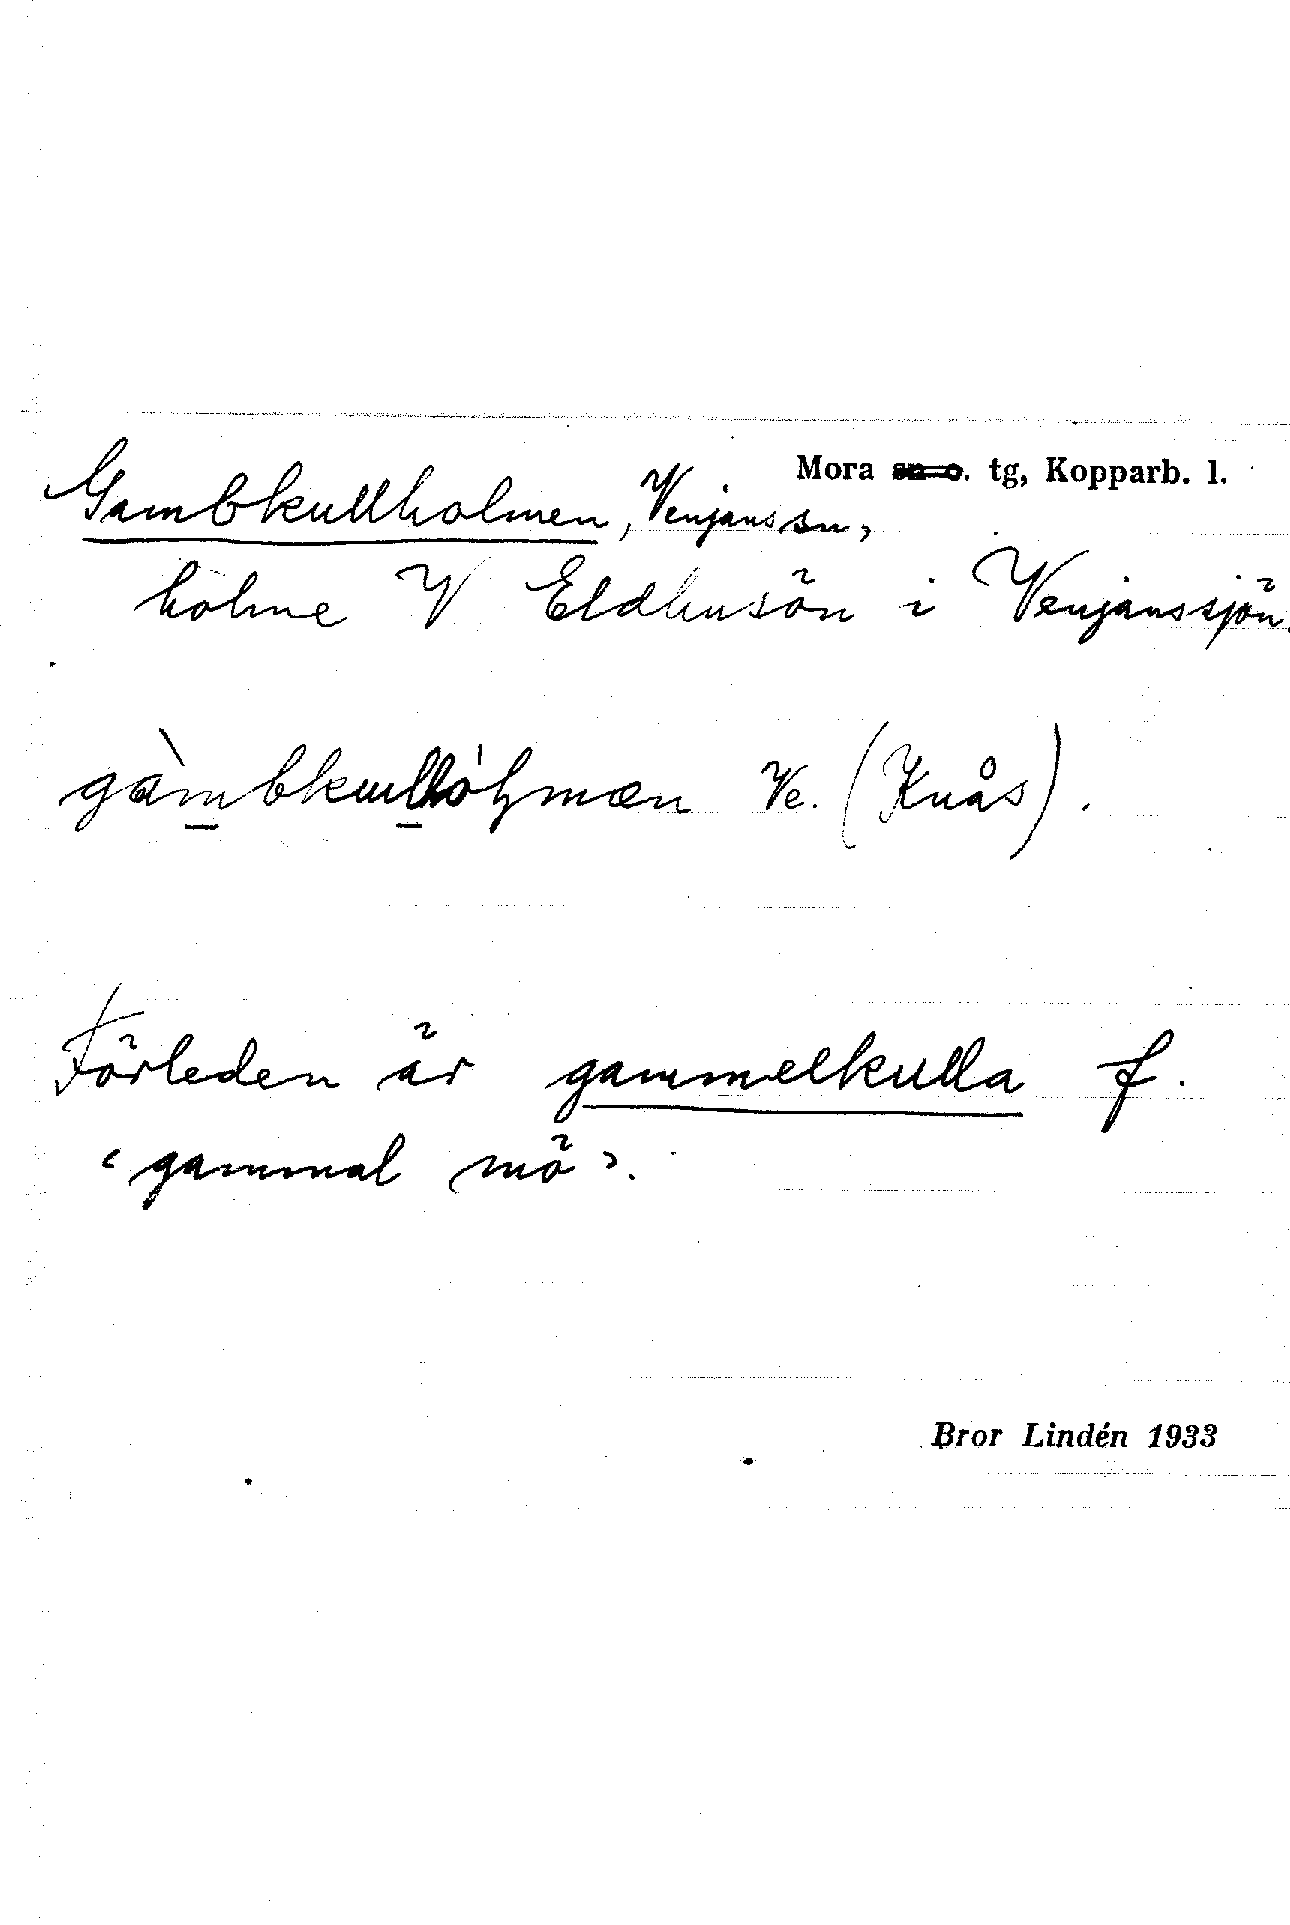 Mora sn o. tg, Kopparb. l.
Gambkullholmen, Venjans sn,
holme V Eldhusön i Venjanssjön.
gàmbkullóɫmæn Ve. (Knås).
Förleden är gammelkulla f.
‘gammal mö’.
Bror Lindén 1933